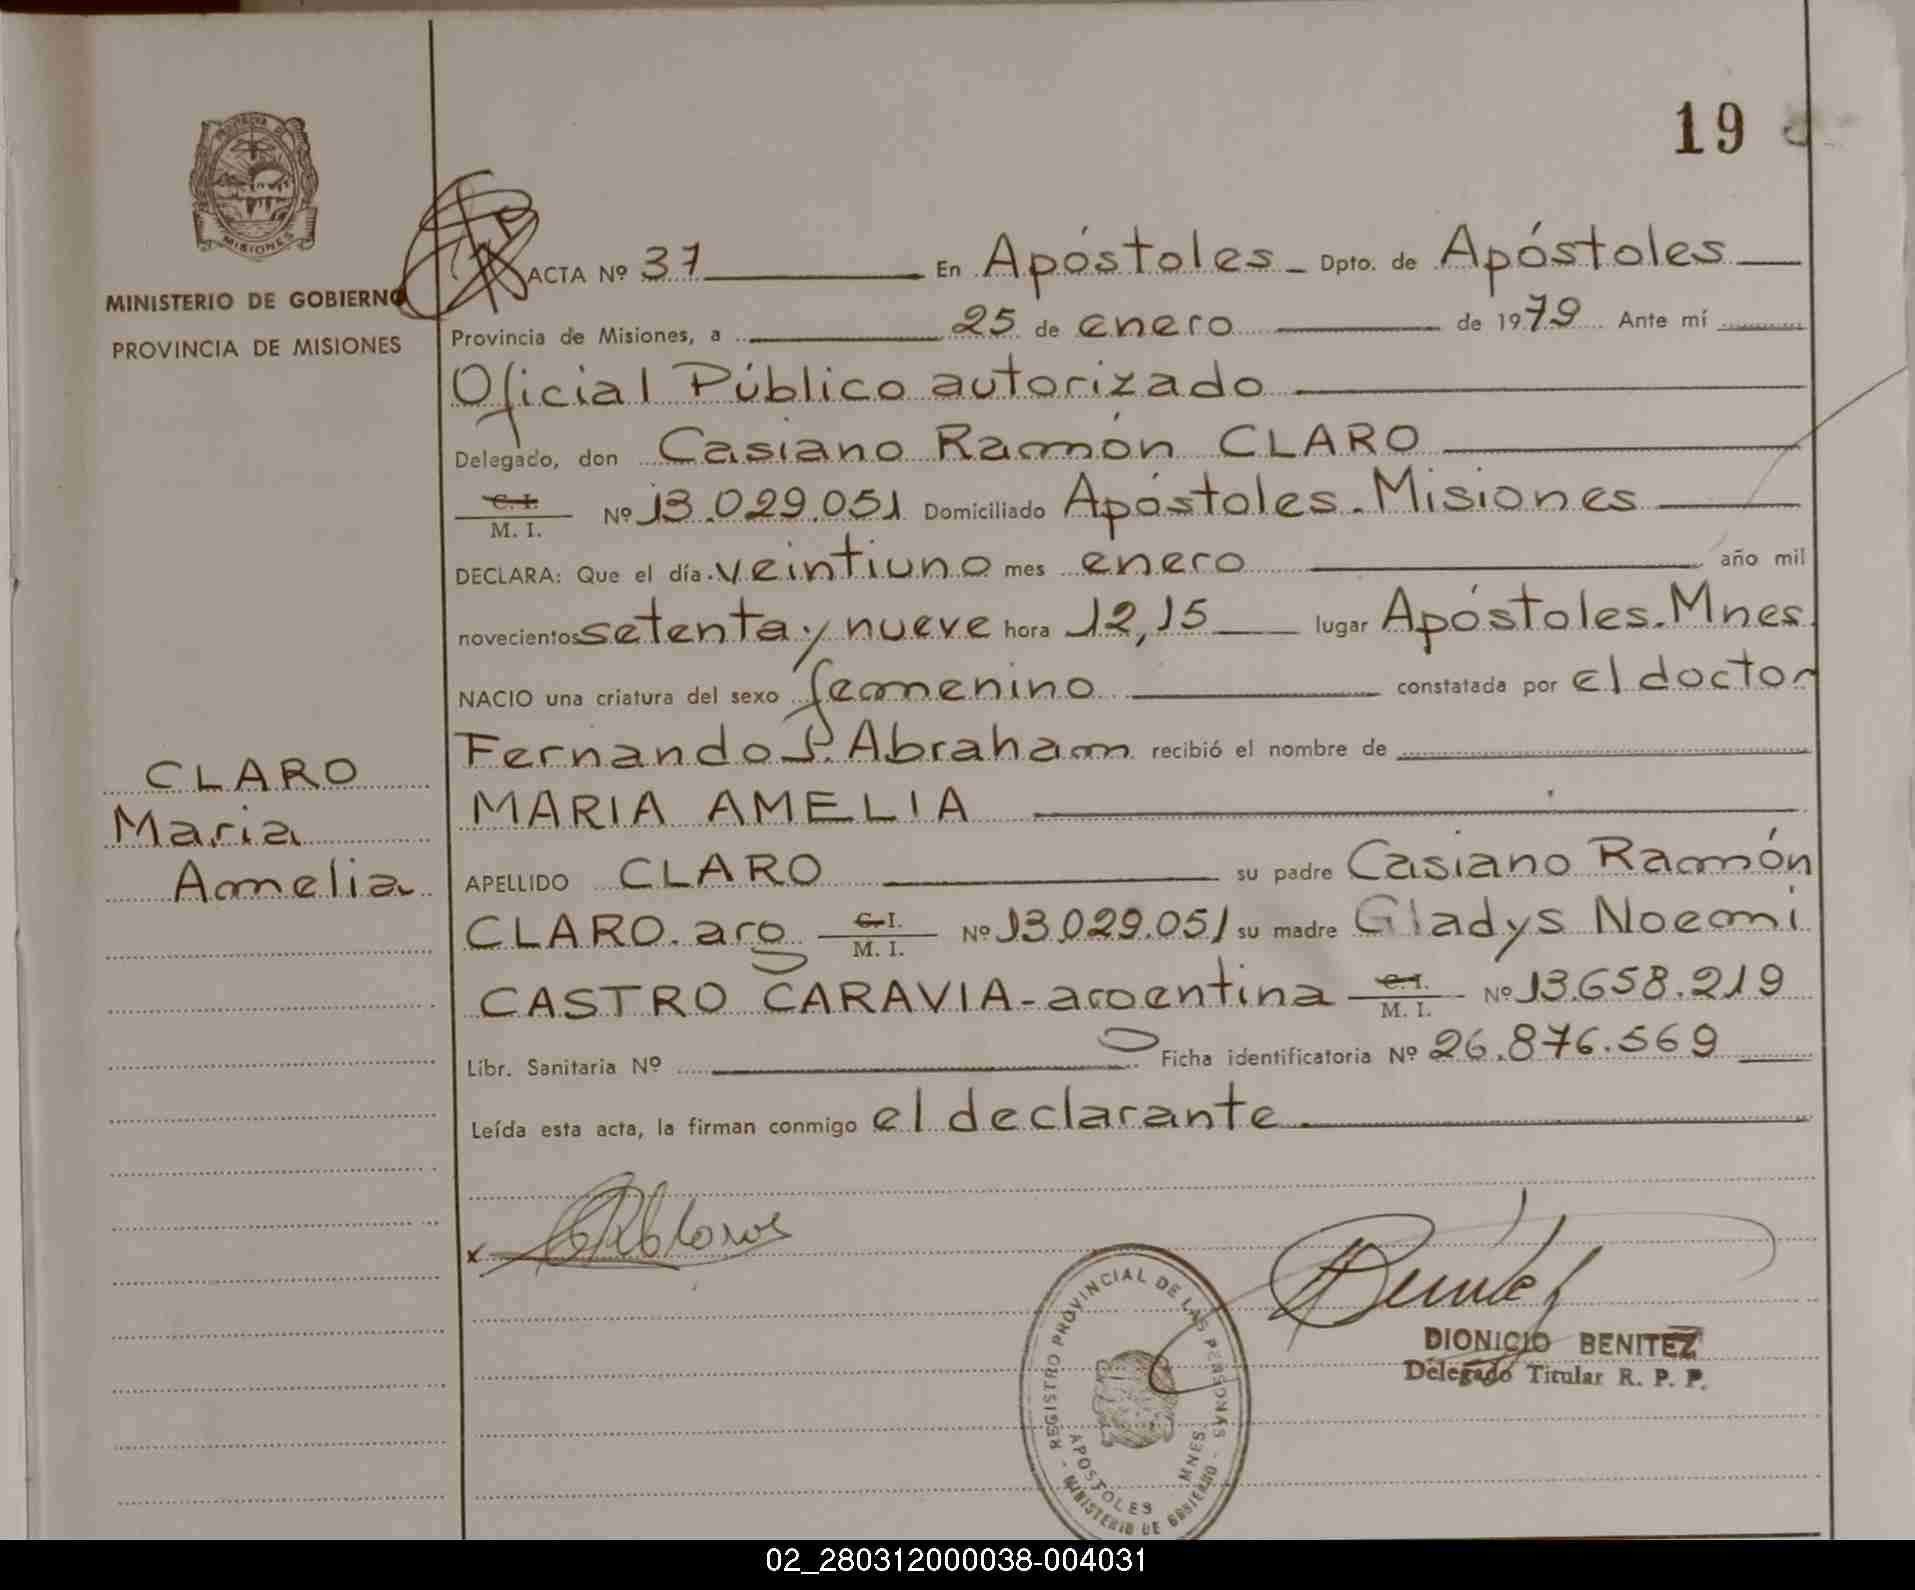 19
PROVINCIA DE
MISIONES
MINISTERIO DE GOBIERNO
PROVINCIA DE MISIONES
ACTA Nº 37 En Apóstoles Dpto. de Apóstoles
Provincia de Misiones, a 25 de enero de 1979 Ante mí
Oficial Público autorizado
Delegado, don Casiano Ramón CLARO
C. I.
M. I. Nº 13.029.051 Domiciliado Apóstoles. Misiones
DECLARA: Que el día veintiuno mes enero año mil
novecientos setenta y nueve hora 12,15 lugar Apóstoles. Mnes.
NACIO una criatura del sexo femenino constatada por el doctor
Fernando P. Abraham recibió el nombre de
CLARO
Maria
Amelia
MARIA AMELIA
APELLIDO CLARO su padre Casiano Ramón
CLARO. arg C. I.
M. I. Nº 13.029.051 su madre Gladys Noemi
CASTRO CARAVIA - argentina C. I.
M. I. Nº 13.658.219
Libr. Sanitaria Nº Ficha identificatoria Nº 26.876.569
Leída esta acta, la firman conmigo el declarante
x
REGISTRO PROVINCIAL DE LAS PERSONAS
APOSTOLES MNES.
MINISTERIO DE GOBIERNO
DIONICIO BENITEZ
Delegado Titular R. P. P.
02_280312000038-004031